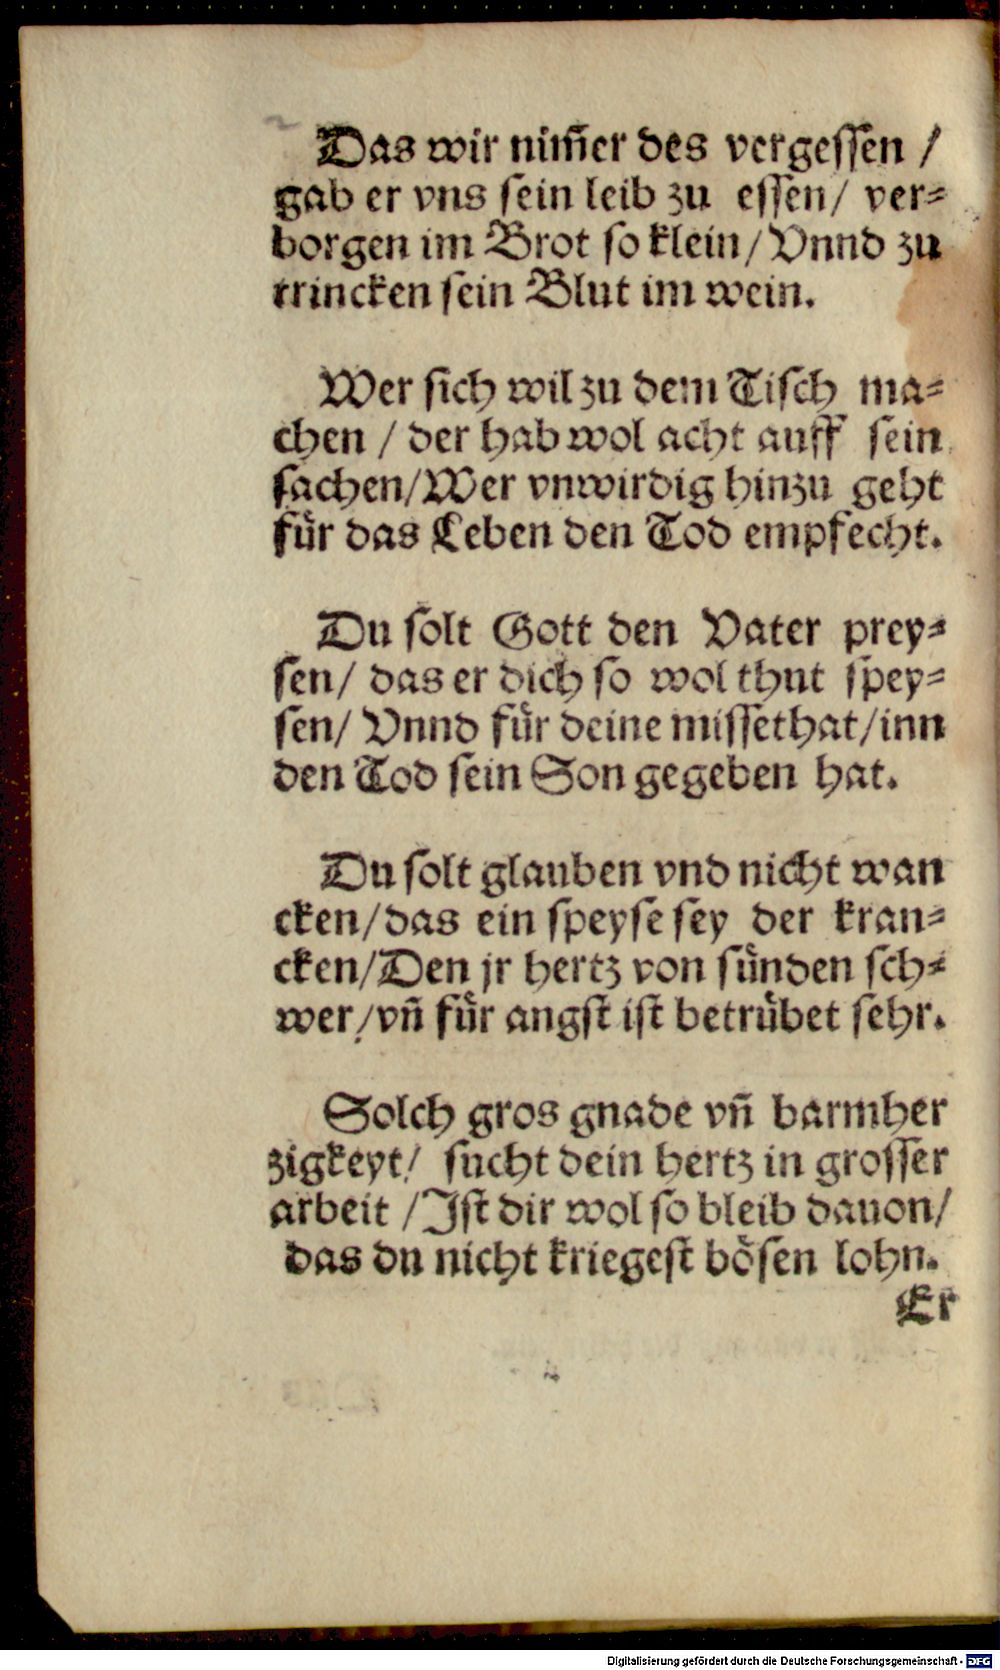 Das wir nim̃er des vergessen /
gab er vns sein leib zu essen/ ver-
borgen im Brot so klein/ Vnnd zu
trincken sein Blut im wein.
Wer sich wil zu dem Tisch ma-
chen / der hab wol acht auff sein
sachen/Wer vnwirdig hinzu geht
für das Leben den Tod empfecht.
Du solt Gott den Vater prey-
sen/ das er dich so wol thut spey-
sen/ Vnnd für deine missethat/inn
den Tod sein Son gegeben hat.
Du solt glauben vnd nicht wan
cken/das ein speyse sey der kran-
cken/Den jr hertz von sünden sch-
wer/vñ für angst ist betrübet sehr.
Solch gros gnade vñ barmher
zigkeyt/ sucht dein hertz in grosser
arbeit /Ist dir wol so bleib dauon/
das du nicht kriegest bösen lohn.
Er
Digitalisierung gefördert durch die Deutsche Forschungsgemeinschaft - DFG